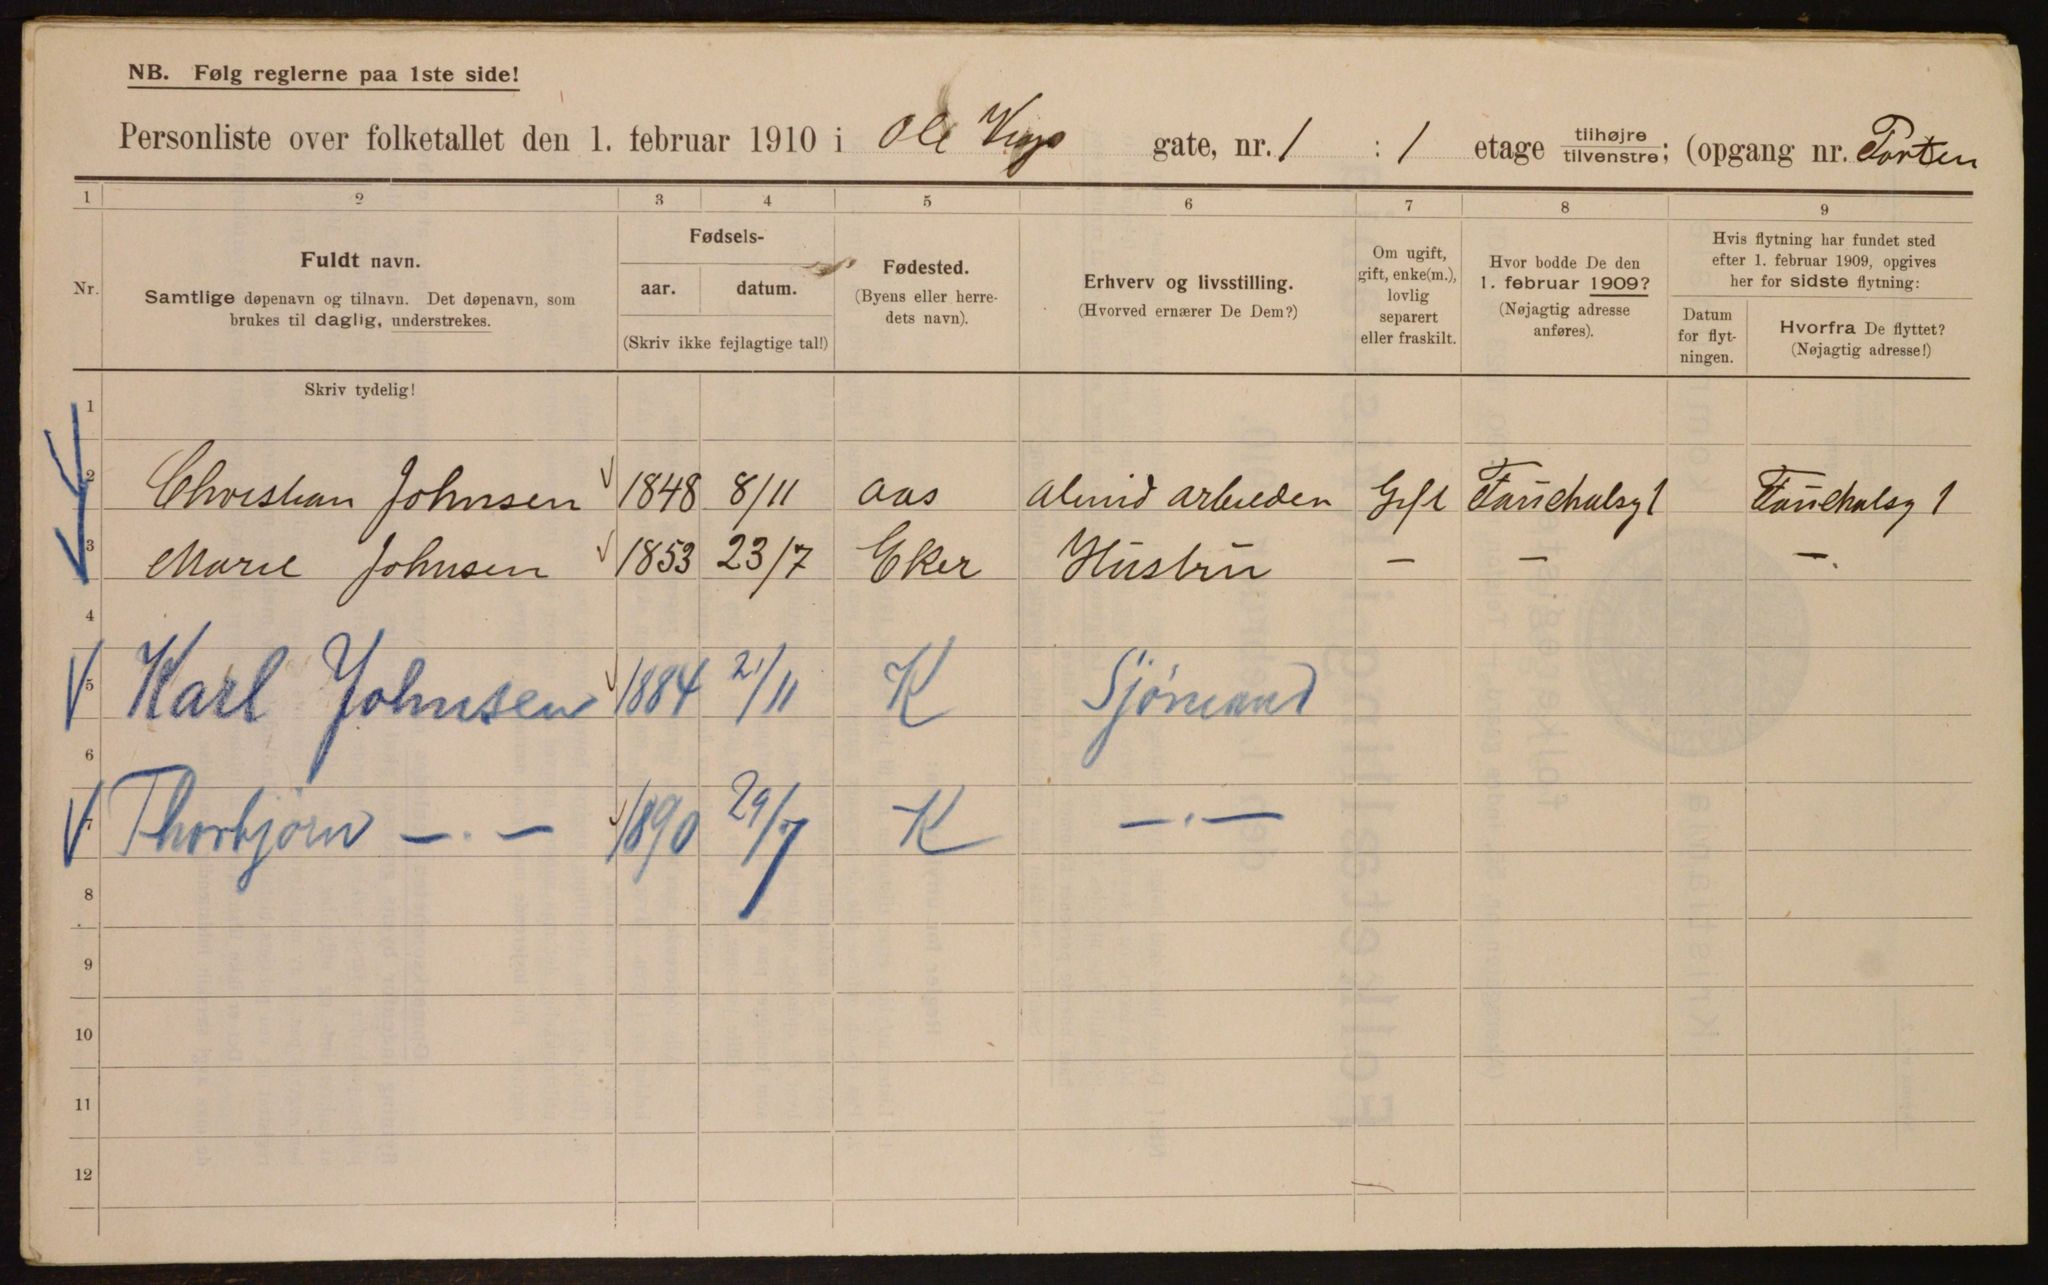 NB. Følg reglerne paa 1ste side!
Personliste over folketallet den 1. februar 1910 i Ole Vigs gate, nr. 1 : 1 etage tilhøjre/tilvenstre; (opgang nr. Porten
1 2 3 4 5 6 7 8 9
Nr.
Fuldt navn.
Samtlige døpenavn og tilnavn. Det døpenavn, som
brukes til daglig, understrekes.
Fødsels-
aar. datum.
(Skriv ikke fejlagtige tal!)
Fødested.
(Byens eller herre-
dets navn).
Erhverv og livsstilling.
(Hvorved ernærer De Dem?)
Om ugift,
gift, enke(m.),
lovlig
separert
eller fraskilt.
Hvor bodde De den
1. februar 1909?
(Nøjagtig adresse
anføres).
Hvis flytning har fundet sted
efter 1. februar 1909, opgives
her for sidste flytning:
Datum
for flyt-
ningen.
Hvorfra De flyttet?
(Nøjagtig adresse!)
Skriv tydelig!
1
2 Christian Johnsen 1848 8/11 Aas Gift Fauchalsg 1 Fauchalsg 1
3 Marie Johnsen 1853 23/7 Eker Hustru — — —
4
5 Karl Johnsen 1884 21/11 K Sjømand
6
7 Thorbjørn —.— 1890 29/7 K —.—
8
9
10
11
12